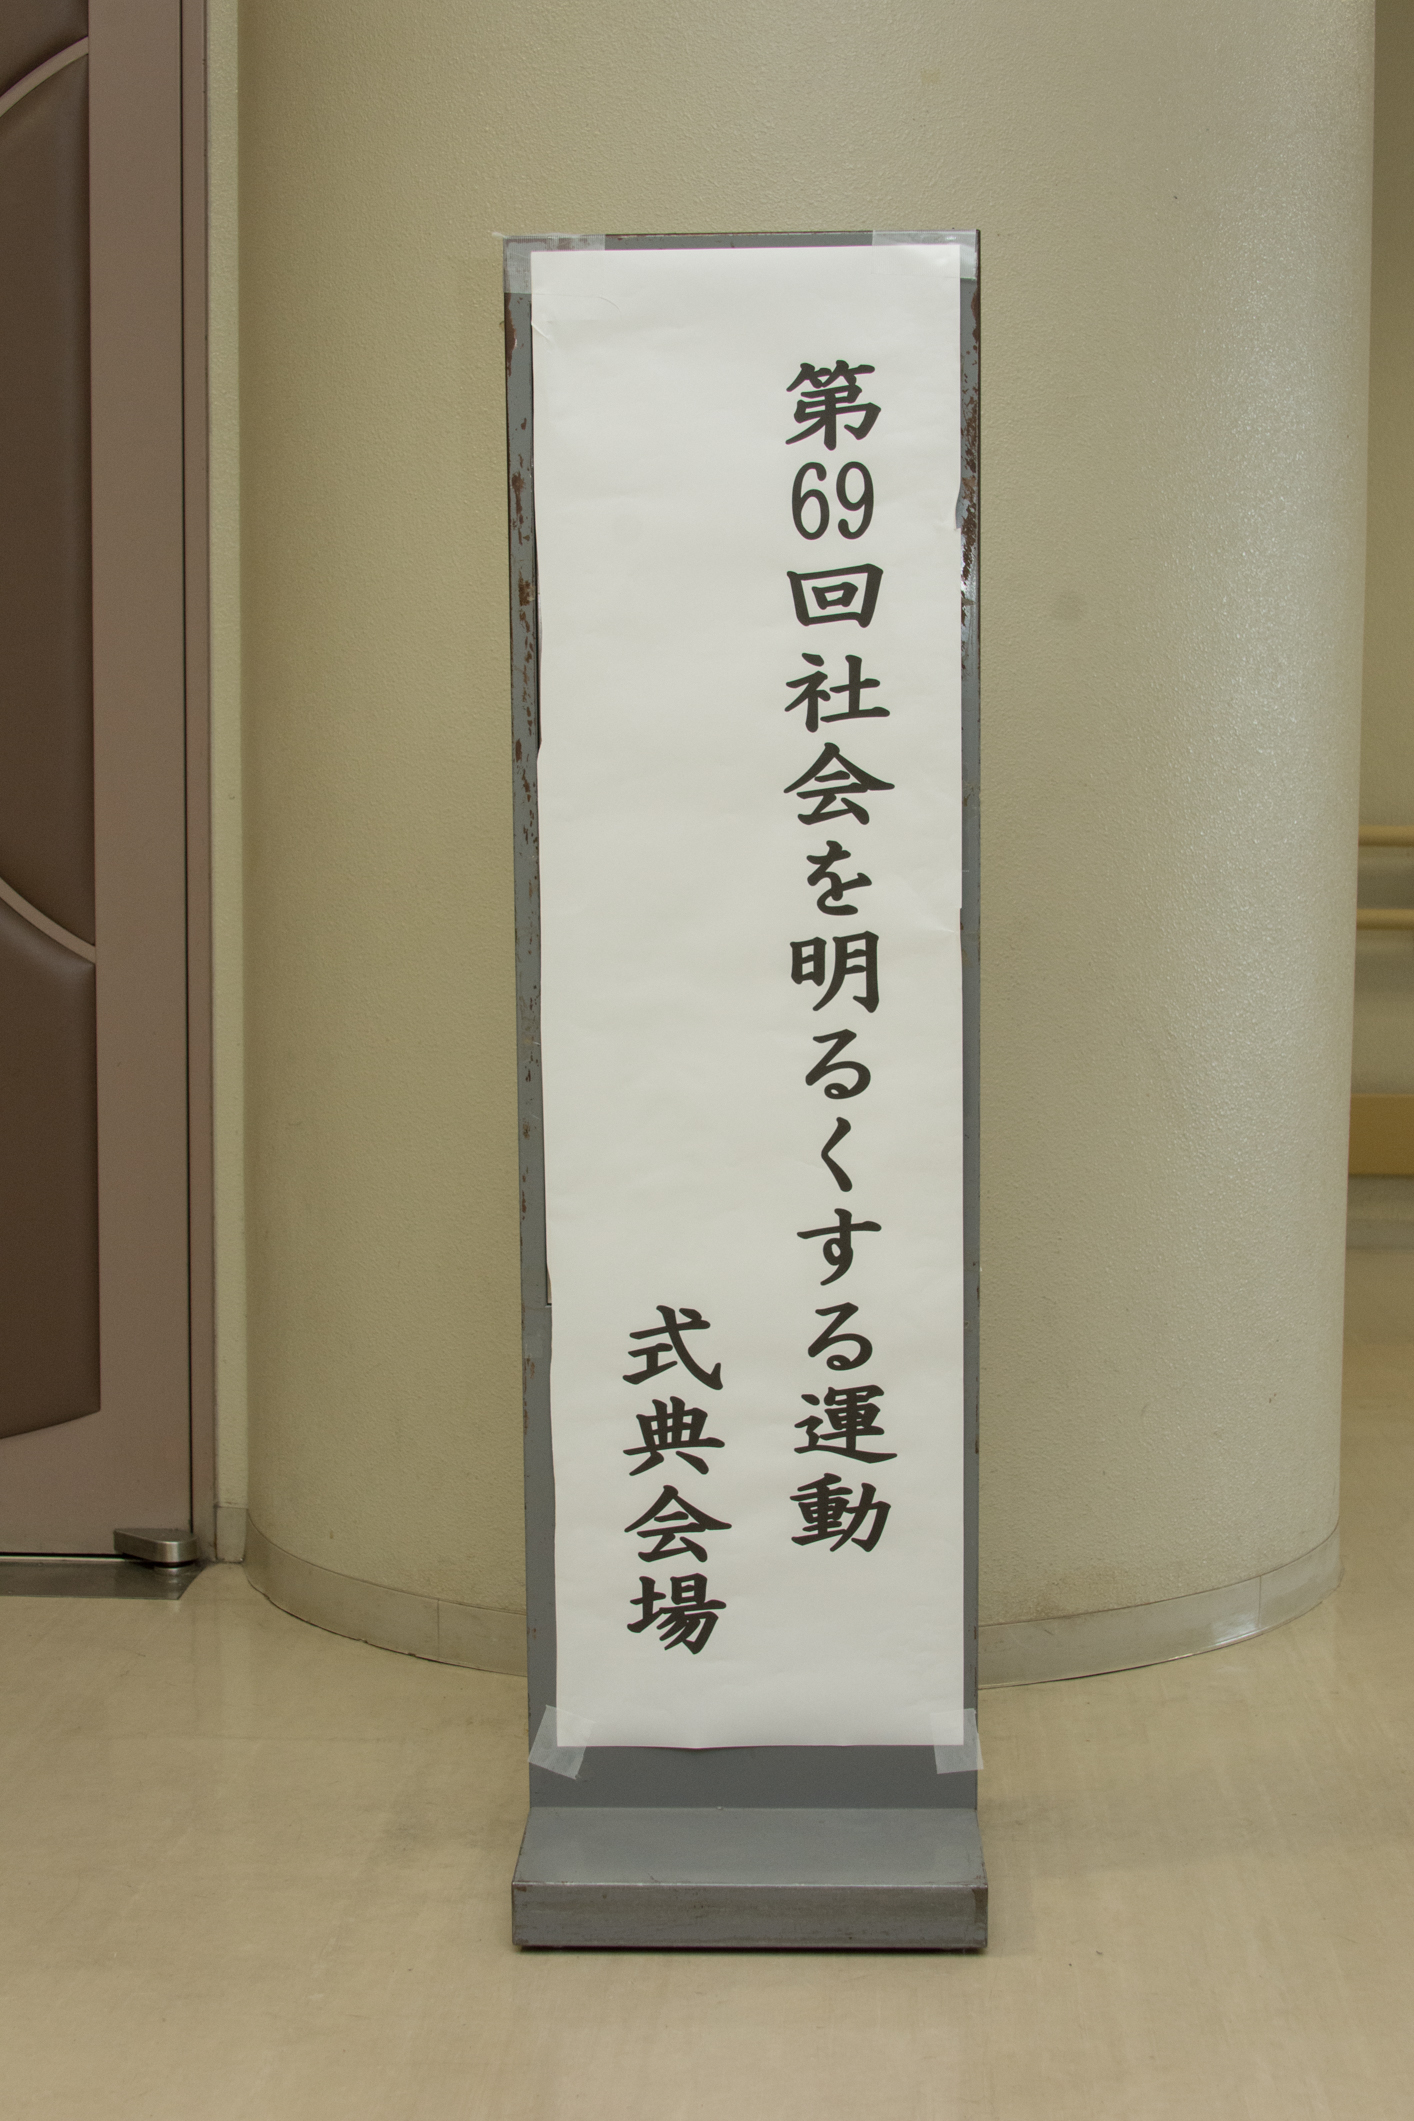 第69回社会を明るくする運動
式典会場